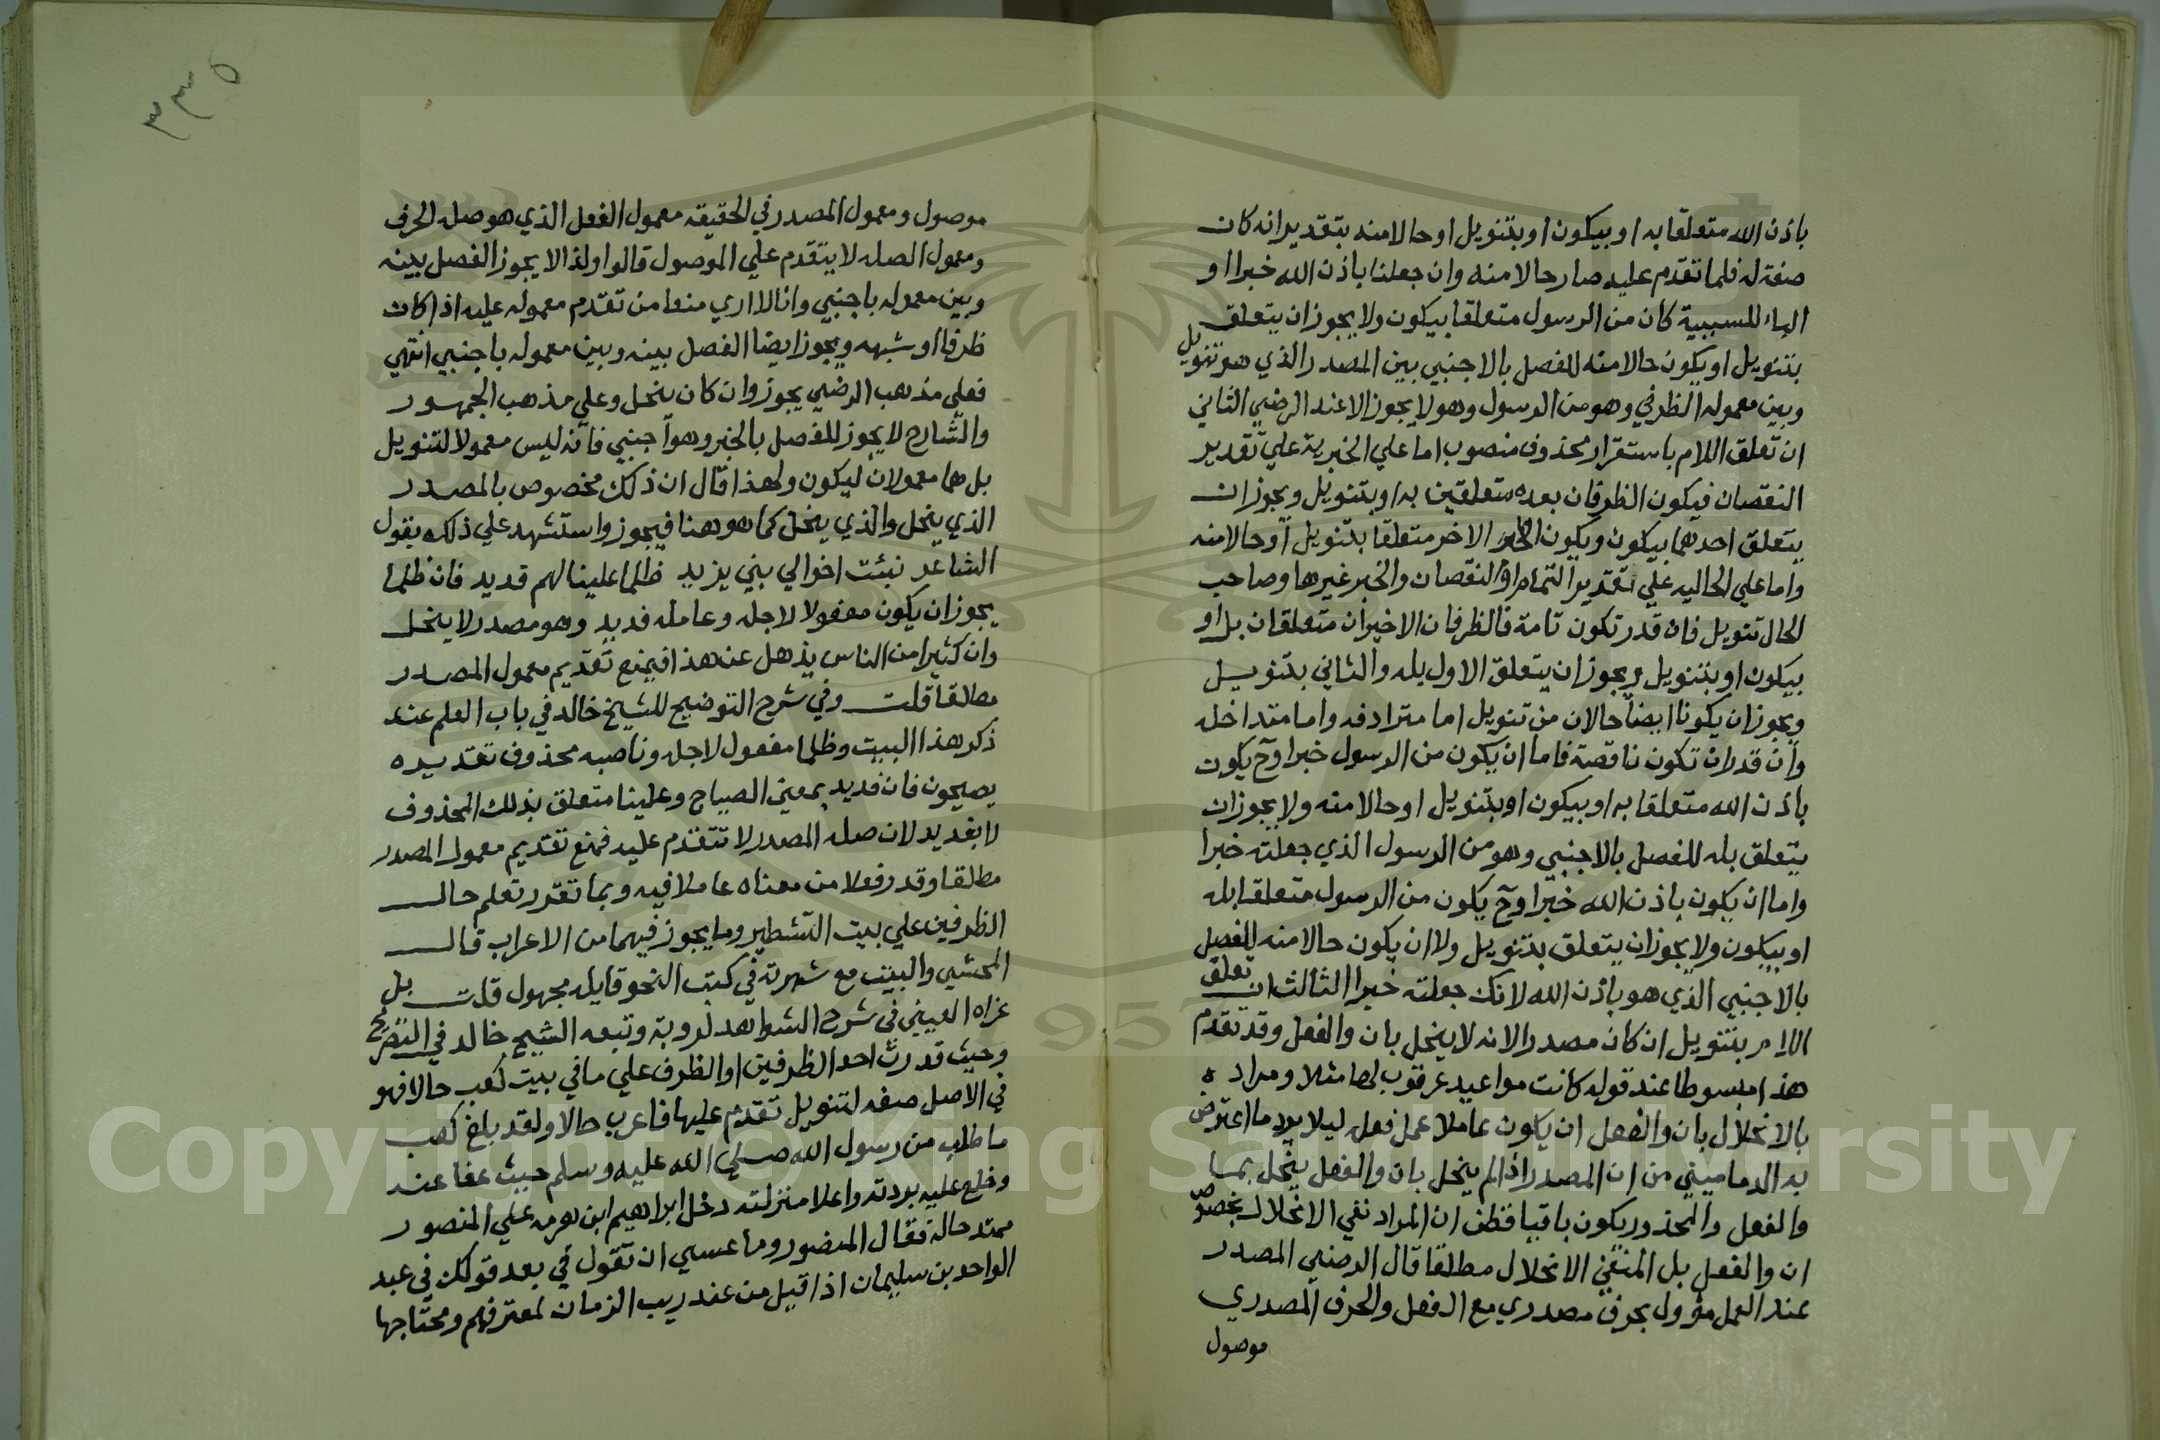 باذن الله متعلقا به او بيكون او بتنويل او حالا منه بتقدير انه كان
صفة له فلما تقدم عليه صار حالا منه وان جعلنا باذن الله خبرا او
الباء للسببية كان من الرسول متعلقا بيكون ولا يجوز ان يتعلق
بتنويل او يكون حالا منه للفصل بالاجنبي بين المصدر الذي هو تنويل
وبين معموله الظرفي وهو من الرسول وهو لا يجوز الا عند الرضي الثاني
ان تعلق اللام باستقرار محذوف منصوب اما علي الخبرية علي تقدير
النقصان فيكون الظرفان بعده متعلقين به او بتنويل ويجوز ان
يتعلق احدهما بيكون ويكون الاخر متعلقا بتنويل او حالا منه
واما علي الحاليه علي تقدير التمام او النقصان والخبر غيرها وصاحب
الحال تنويل فان قدر تكون تامة فالظرفان الاخيران متعلقان بله او
بيكون او بتنويل ويجوز ان يتعلق الاول بله والثاني بتنويل
ويجوز ان يكونا ايضا حالان من تنويل اما مترادفه واما متداخله
وان قدران تكون ناقصة فاما ان يكون من الرسول خبرا وح يكون
باذن الله متعلقا به او بيكون او بتنويل او حالا منه ولا يجوز ان
يتعلق بله للفصل بالاجنبي وهو من الرسول الذي جعلته خبرا
واما ان يكون باذن الله خبرا وح يكون من الرسول متعلقا بله
او بيكون ولا يجوز ان يتعلق بتنويل ولا ان يكون حالا منه للفصل
بالاجنبي الذي هو باذن الله لانك جعلته خبرا الثالث ان تعلق
اللام بتنويل ان كان مصدرا لانه لا ينحل بان والفعل وقد تقدم
هذا مبسوطا عند قوله كانت مواعيد عرقوب لها مثلا ومراده
بالانحلال بان والفعل ان يكون عاملا عمل فعله ليلا يرد ما اعترض
به الدماميني من ان المصدر اذا لم ينحل بان والفعل ينحل بما
والفعل والمحذور يكون باقيا فظن ان المراد نفي الانحلال بخصوص
ان والفعل بل المنفي الانحلال مطلقا قال الرضي المصدر
عند العمل مؤول بحرف مصدري مع الفعل والحرف المصدري
موصول
٣٣٥
موصول ومعمول المصدر في الحقيقه معمول الفعل الذي هو صله الحرف
ومعمول الصله لا يتقدم علي الموصول قالوا ولذا لا يجوز الفصل بينه
وبين معموله باجنبي وانا لا اري منعا من تقدم معموله عليه اذا كان
ظرفا او شبهه ويجوز ايضا الفصل بينه وبين معموله باجنبي انتهي
فعلي مذهب الرضي يجوز وان كان ينحل وعلي مذهب الجمهور
والشارح لا يجوز للفصل بالخبر وهو اجنبي فانه ليس معمولا لتنويل
بل هما معمولان ليكون ولهذا قال ان ذلك مخصوص بالمصدر
الذي ينحل والذي ينحل كما هو هنا فيجوز واستشهد علي ذلك بقول
الشاعر نبئت اخوالي بني يزيد ظلما علينا لهم فديد فان ظلما
يجوز ان يكون مفعولا لاجله وعامله فديد وهو مصدر لا ينحل
وان كثيرا من الناس يذهل عن هذا فيمنع تقديم معمول المصدر
مطلقا قلت وفي شرح التوضيح للشيخ خالد في باب العلم عند
ذكر هذا البيت وظلما مفعول لاجله وناصبه محذوف تقديره
يصيحون فان فديد بمعني الصياح وعلينا متعلق بذلك المحذوف
لا بفديد لان صله المصدر لا تتقدم عليه فمنع تقديم معمول المصدر
مطلقا وقدر فعلا من معناه عاملا فيه وبما تقرر تعلم حال
الظرفين علي بيت التشطير وما يجوز فيهما من الاعراب قال
المحشي والبيت مع شهرته في كتب النحو قايله مجهول قلت بل
عزاه العيني في شرح الشواهد لروبة وتبعه الشيخ خالد في التصريح
وحيث قدرت احد الظرفين او الظرف علي ما في بيت كعب حالا فهو
في الاصل صفه لتنويل تقدم عليها فاعرب حالا ولقد بلغ كعب
ما طلب من رسول الله صلي الله عليه وسلم حيث عفا عنه
وخلع عليه بردته واعلا منزلته دخل ابراهيم ابن هرمه علي المنصور
ممتدحا له فقال المنصور وما عسي ان تقول في بعد قولك في عبد
الواحد بن سليمان اذا قيل من عند ريب الزمان لمعتر فهر ومحتاجها